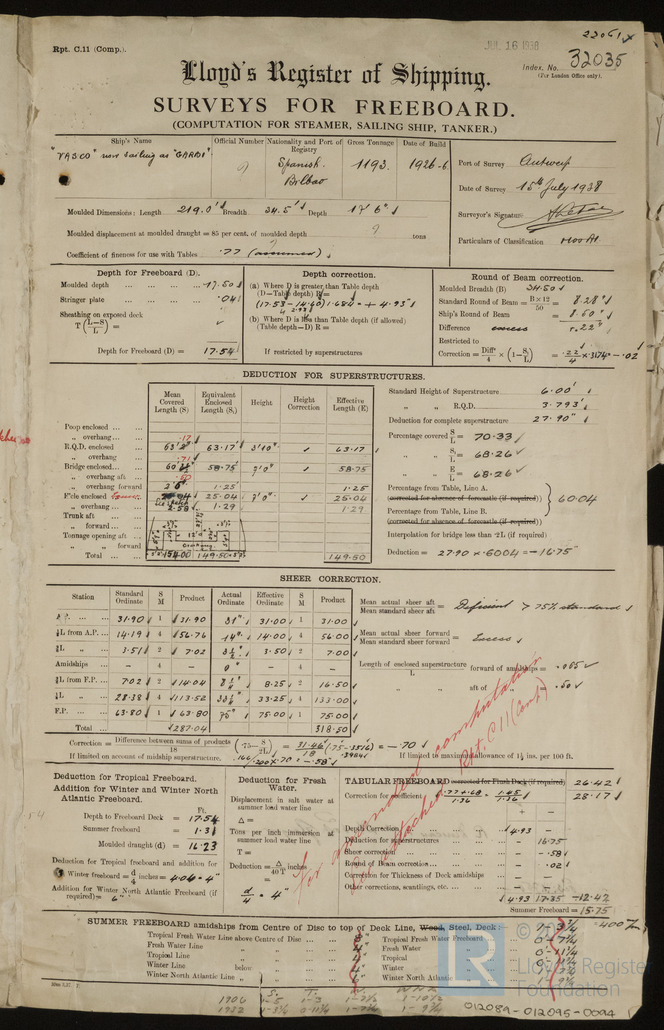 Rpt. C.11 (Comp.).
JUL 16 1938
23061
Index. No. 32035
(For London Office only).
Lloyd's Register of Shipping.
SURVEYS FOR FREEBOARD.
(COMPUTATION FOR STEAMER, SAILING SHIP, TANKER.)
Ship's Name Official Number Nationality and Port of Registry Gross Tonnage Date of Build
"VASCO" now sailing as "GARBI" ? Spanish. Bilbao 1193. 1926-6
Port of Survey Antwerp
Date of Survey 15th July 1938
Surveyor's Signature
Particulars of Classification
Moulded Dimensions: Length 219.0' Breadth 34.5' Depth 17' 6"
Moulded displacement at moulded draught = 85 per cent. of moulded depth ? tons
Coefficient of fineness for use with Tables .77 (assumed)
Depth for Freeboard (D).
Moulded depth 17.50
Stringer plate .04
Sheathing on exposed deck
T (L-S/L) =
Depth for Freeboard (D) = 17.54
Depth correction.
(a) Where D is greater than Table depth
(D-Table depth) R =
(17.53 - 14.60) 1.684 = + 4.93"
(b) Where D is less than Table depth (if allowed)
(Table depth-D) R =
If restricted by superstructures
Round of Beam correction.
Moulded Breadth (B) 34.50
Standard Round of Beam = B×12/50 = 8.28"
Ship's Round of Beam = 8.60"
Difference excess .22"
Restricted to
Correction = Diff/4 × (1-S1/L) = .22/4 × .3174 = - .02
DEDUCTION FOR SUPERSTRUCTURES.
Mean Covered Length (S) Equivalent Enclosed Length (S1) Height Height Correction Effective Length (E)
Poop enclosed
„ overhang .17
R.Q.D. enclosed 63'2" 63.17 3'10" 63.17
„ overhang .71
Bridge enclosed 58.75 7'0" 58.75
„ overhang aft .50
„ overhang forward 2'6" 1.25 1.25
F'cle enclosed 25.04 25.04 7'0" 25.04
„ overhang 2.58 1.29 1.29
Trunk aft
„ forward
Tonnage opening aft
„ „ forward
Total 154.00 149.50 149.50
Standard Height of Superstructure 6.00'
„ „ R.Q.D. 3.793'
Deduction for complete superstructure 27.90"
Percentage covered S/L = 70.33
„ S1/L = 68.26
„ E/L = 68.26
Percentage from Table, Line A.
(corrected for absence of forecastle (if required)) 60.04
Percentage from Table, Line B.
(corrected for absence of forecastle (if required))
Interpolation for bridge less than ·2L (if required)
Deduction = 27.90 × .6004 = - 16.75
SHEER CORRECTION.
Station Standard Ordinate S M Product Actual Ordinate Effective Ordinate S M Product
A.P. 31.90 1 31.90 31" 31.00 1 31.00
⅙L from A.P. 14.19 4 56.76 14" 14.00 4 56.00
⅓L „ 3.51 2 7.02 3½" 3.50 2 7.00
Amidships - 4 - 0" - 4 -
⅓L from F.P. 7.02 2 14.04 8¼" 8.25 2 16.50
⅙L „ 28.38 4 113.52 33¼" 33.25 4 133.00
F.P. 63.80 1 63.80 75" 75.00 1 75.00
Total 287.04 318.50
Mean actual sheer aft / Mean standard sheer aft = Deficient > 75% standard
Mean actual sheer forward / Mean standard sheer forward = Excess
Length of enclosed superstructure / L forward of amidships = .085
„ aft of „ = .50
Correction = Difference between sums of products / 18 (·75 - S/2L) = 31.46/18 (.75 - .3516) = - .70
If limited on account of midship superstructure. .166/.200 × .70 = - .58
If limited to maximum allowance of 1½ ins. per 100 ft.
For amended computation
see attached Rpt. C11 (Cont.)
Deduction for Tropical Freeboard.
Addition for Winter and Winter North Atlantic Freeboard.
Ft.
Depth to Freeboard Deck = 17.54
Summer freeboard = 1.31
Moulded draught (d) = 16.23
Deduction for Tropical freeboard and addition for
Winter freeboard = d/4 inches = 4.06 - 4"
Addition for Winter North Atlantic Freeboard (if required) = 6"
Deduction for Fresh Water.
Displacement in salt water at summer load water line
Δ =
Tons per inch immersion at summer load water line
T =
Deduction = Δ/40T inches
=
d/4 = 4"
TABULAR FREEBOARD corrected for Flush Deck (if required) 26.42
Correction for coefficient .77+.68/1.36 = 1.45/1.36 28.17
+ -
Depth Correction 4.93 -
Deduction for superstructures - 16.75
Sheer correction - .58
Round of Beam correction - .02
Correction for Thickness of Deck amidships - -
Other corrections, scantlings, etc. - -
4.93 17.35 -12.42
Summer Freeboard = 15.75
= 400
SUMMER FREEBOARD amidships from Centre of Disc to top of Deck Line, Wood, Steel, Deck:-
Tropical Fresh Water Line above Centre of Disc
Fresh Water Line „ „
Tropical Line „ „
Winter Line below „
Winter North Atlantic Line „ „
Tropical Fresh Water Freeboard
Fresh Water „
Tropical „
Winter „
Winter North Atlantic „
LR
© Lloyd's Register Foundation
S. T. W. WNA
1906 1-5 1-3 1-7½ 1-10½
012089-012095-0094